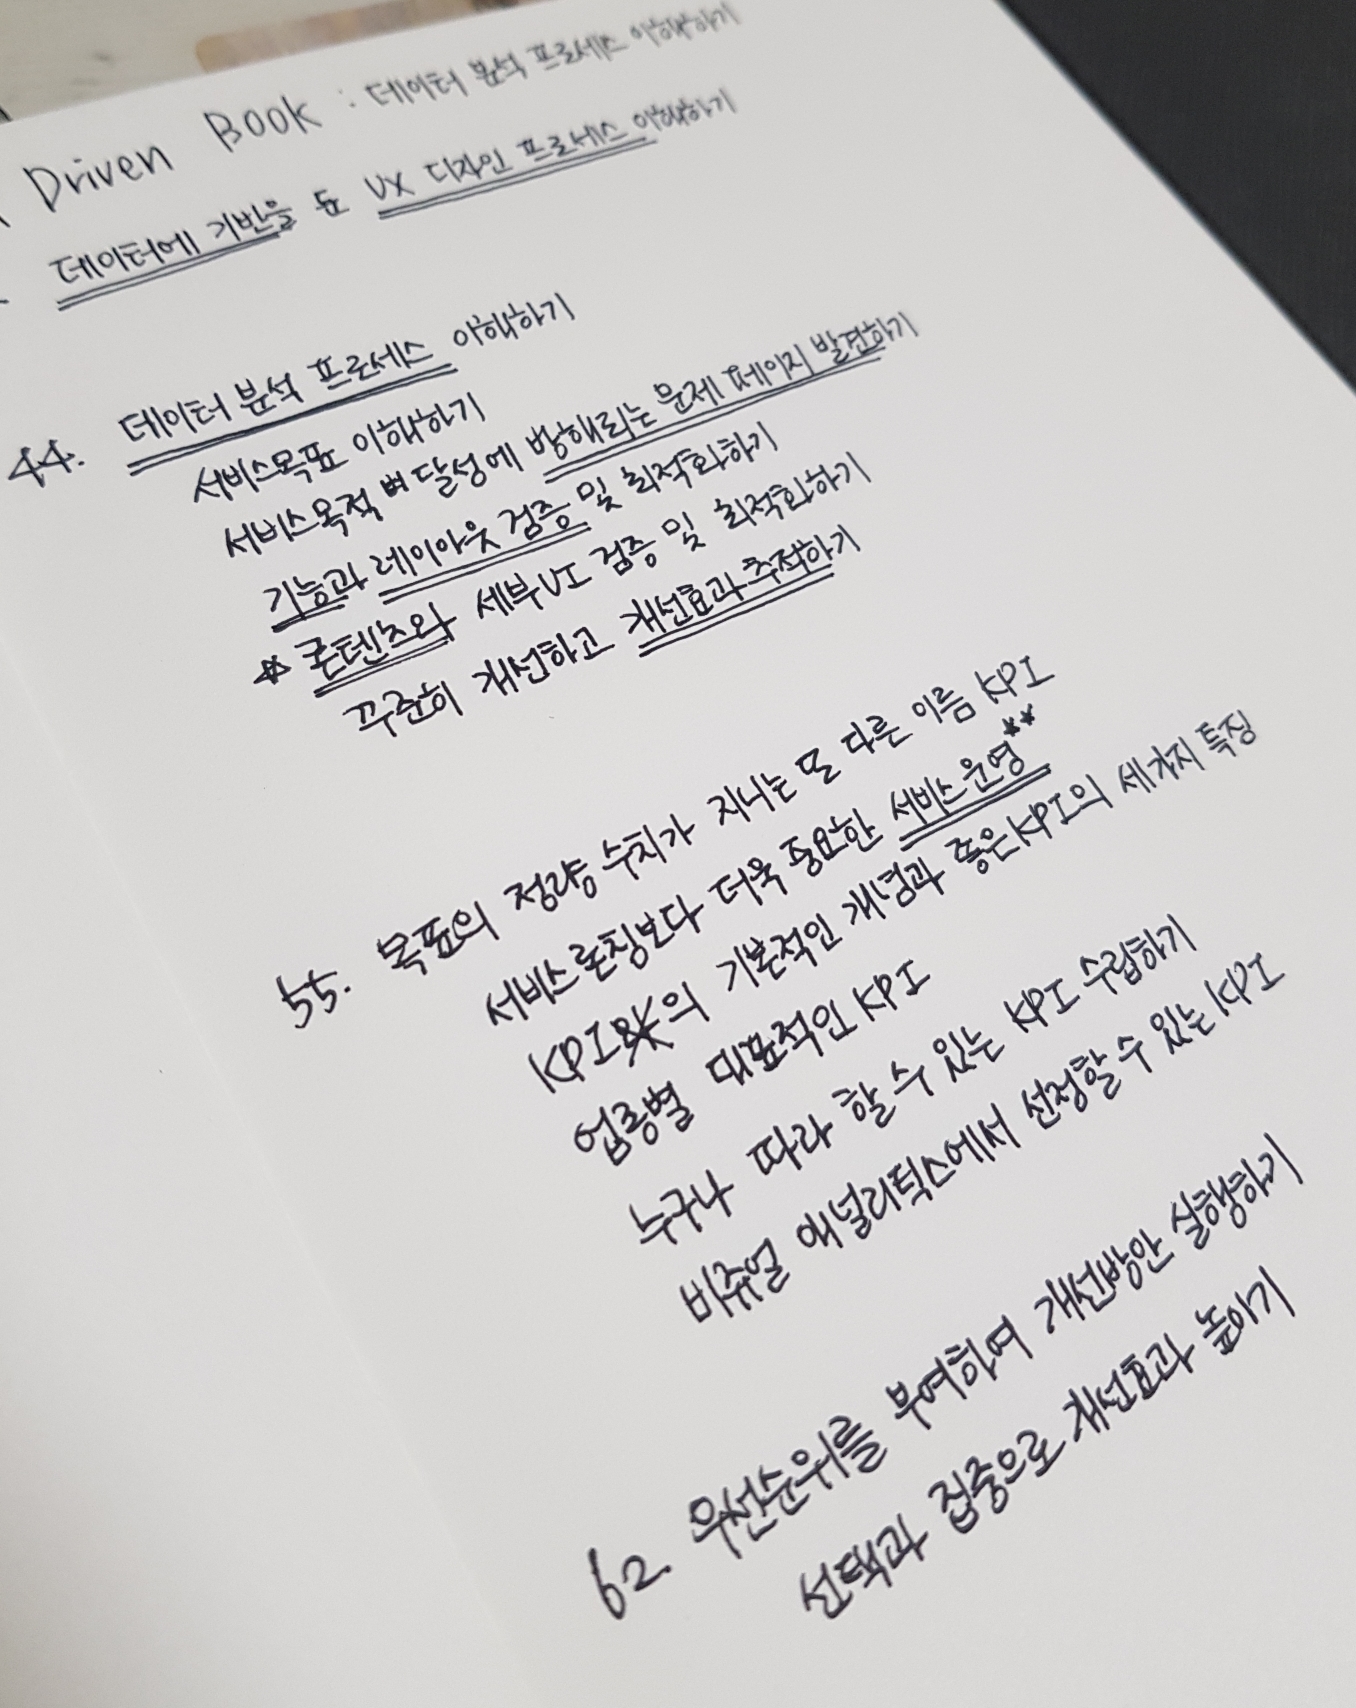 Driven Book : 데이터 분석 프로세스 이해하기
데이터에 기반을 둔 UX 디자인 프로세스 이해하기
44. 데이터 분석 프로세스 이해하기
서비스목표 이해하기
서비스목적 달성에 방해되는 문제 페이지 발견하기
기능과 레이아웃 검증 및 최적화하기
* 콘텐츠와 세부UI 검증 및 최적화하기
꾸준히 개선하고 개선효과추적하기
55. 목표의 정량 수치가 지니는 또 다른 이름 KPI
서비스 론칭보다 더욱 중요한 서비스 운영**
KPI의 기본적인 개념과 좋은KPI의 세가지 특징
업종별 대표적인 KPI
누구나 따라 할 수 있는 KPI 수립하기
비쥬얼 애널리틱스에서 선정할 수 있는 KPI
62. 우선순위를 부여하여 개선방안 실행하기
선택과 집중으로 개선효과 높이기